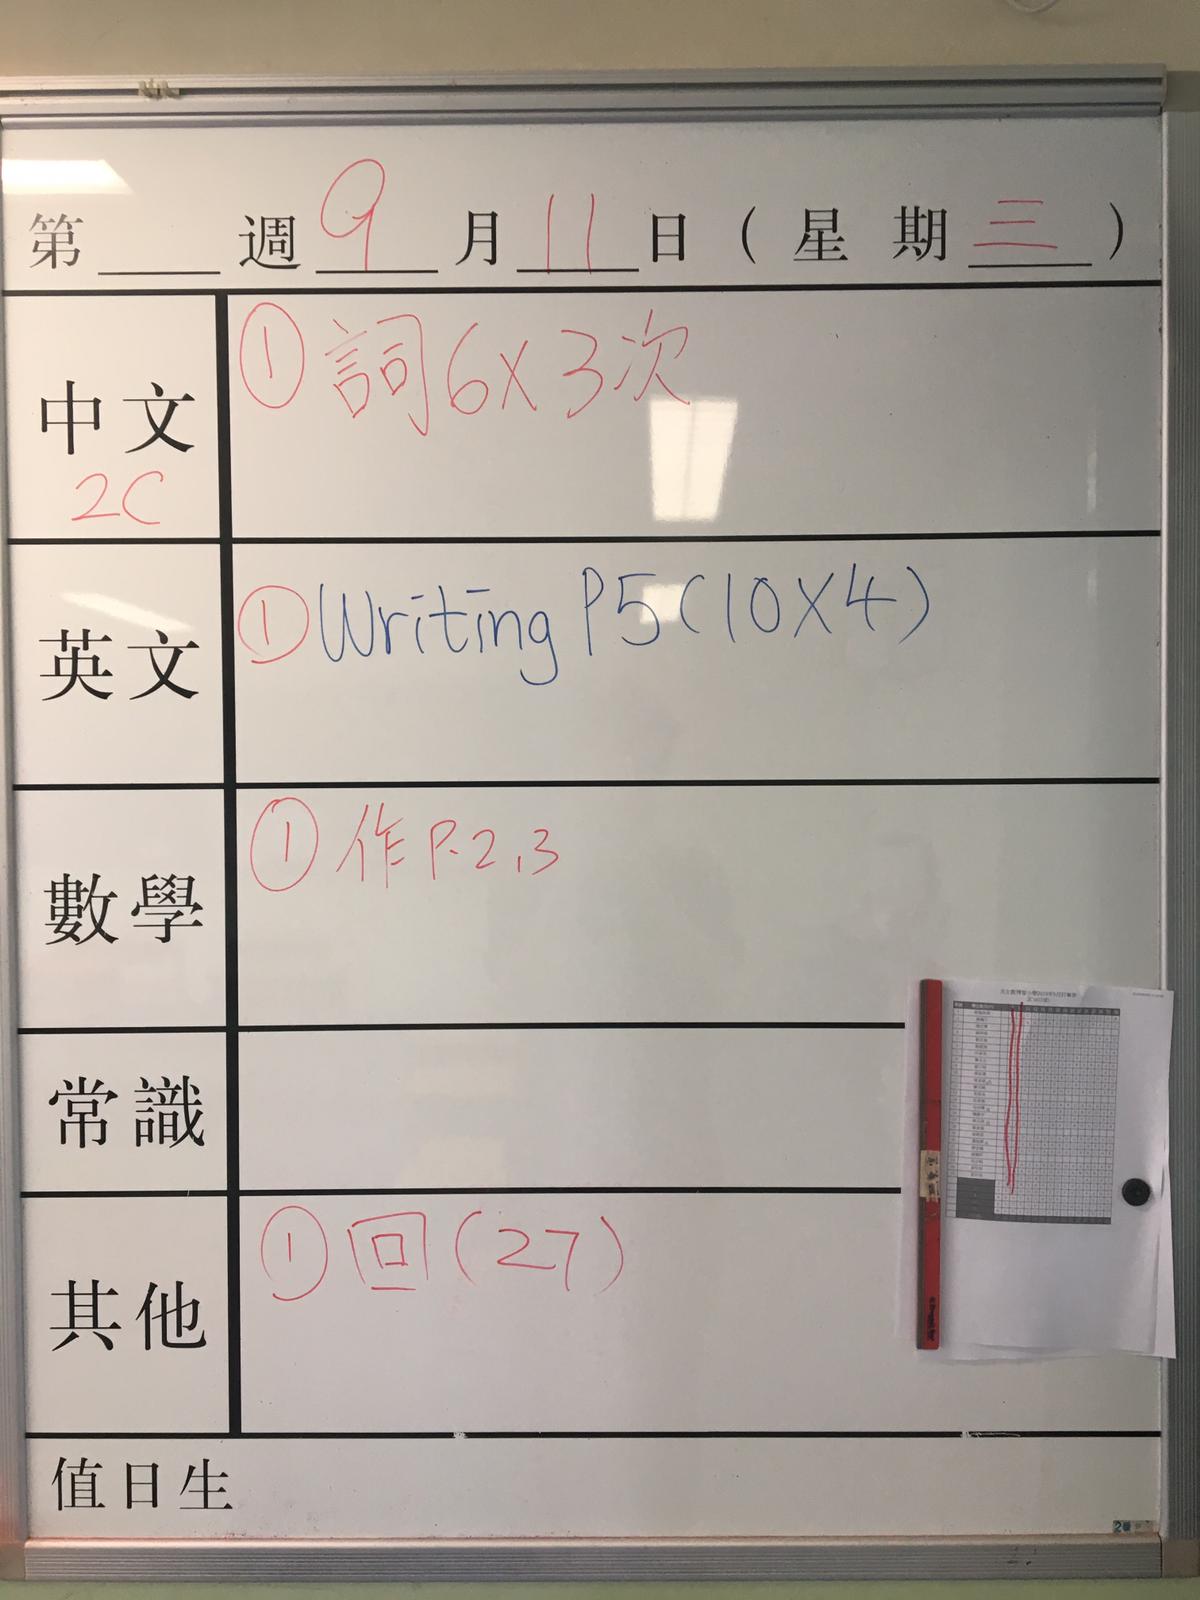 第 週 9 月 11 日 ( 星 期 三 )
中文
2C
① 詞6X3次
英文
① Writing P5(10X4)
數學
① 作 P.2,3
常識
其他
① 回 (27)
值日生